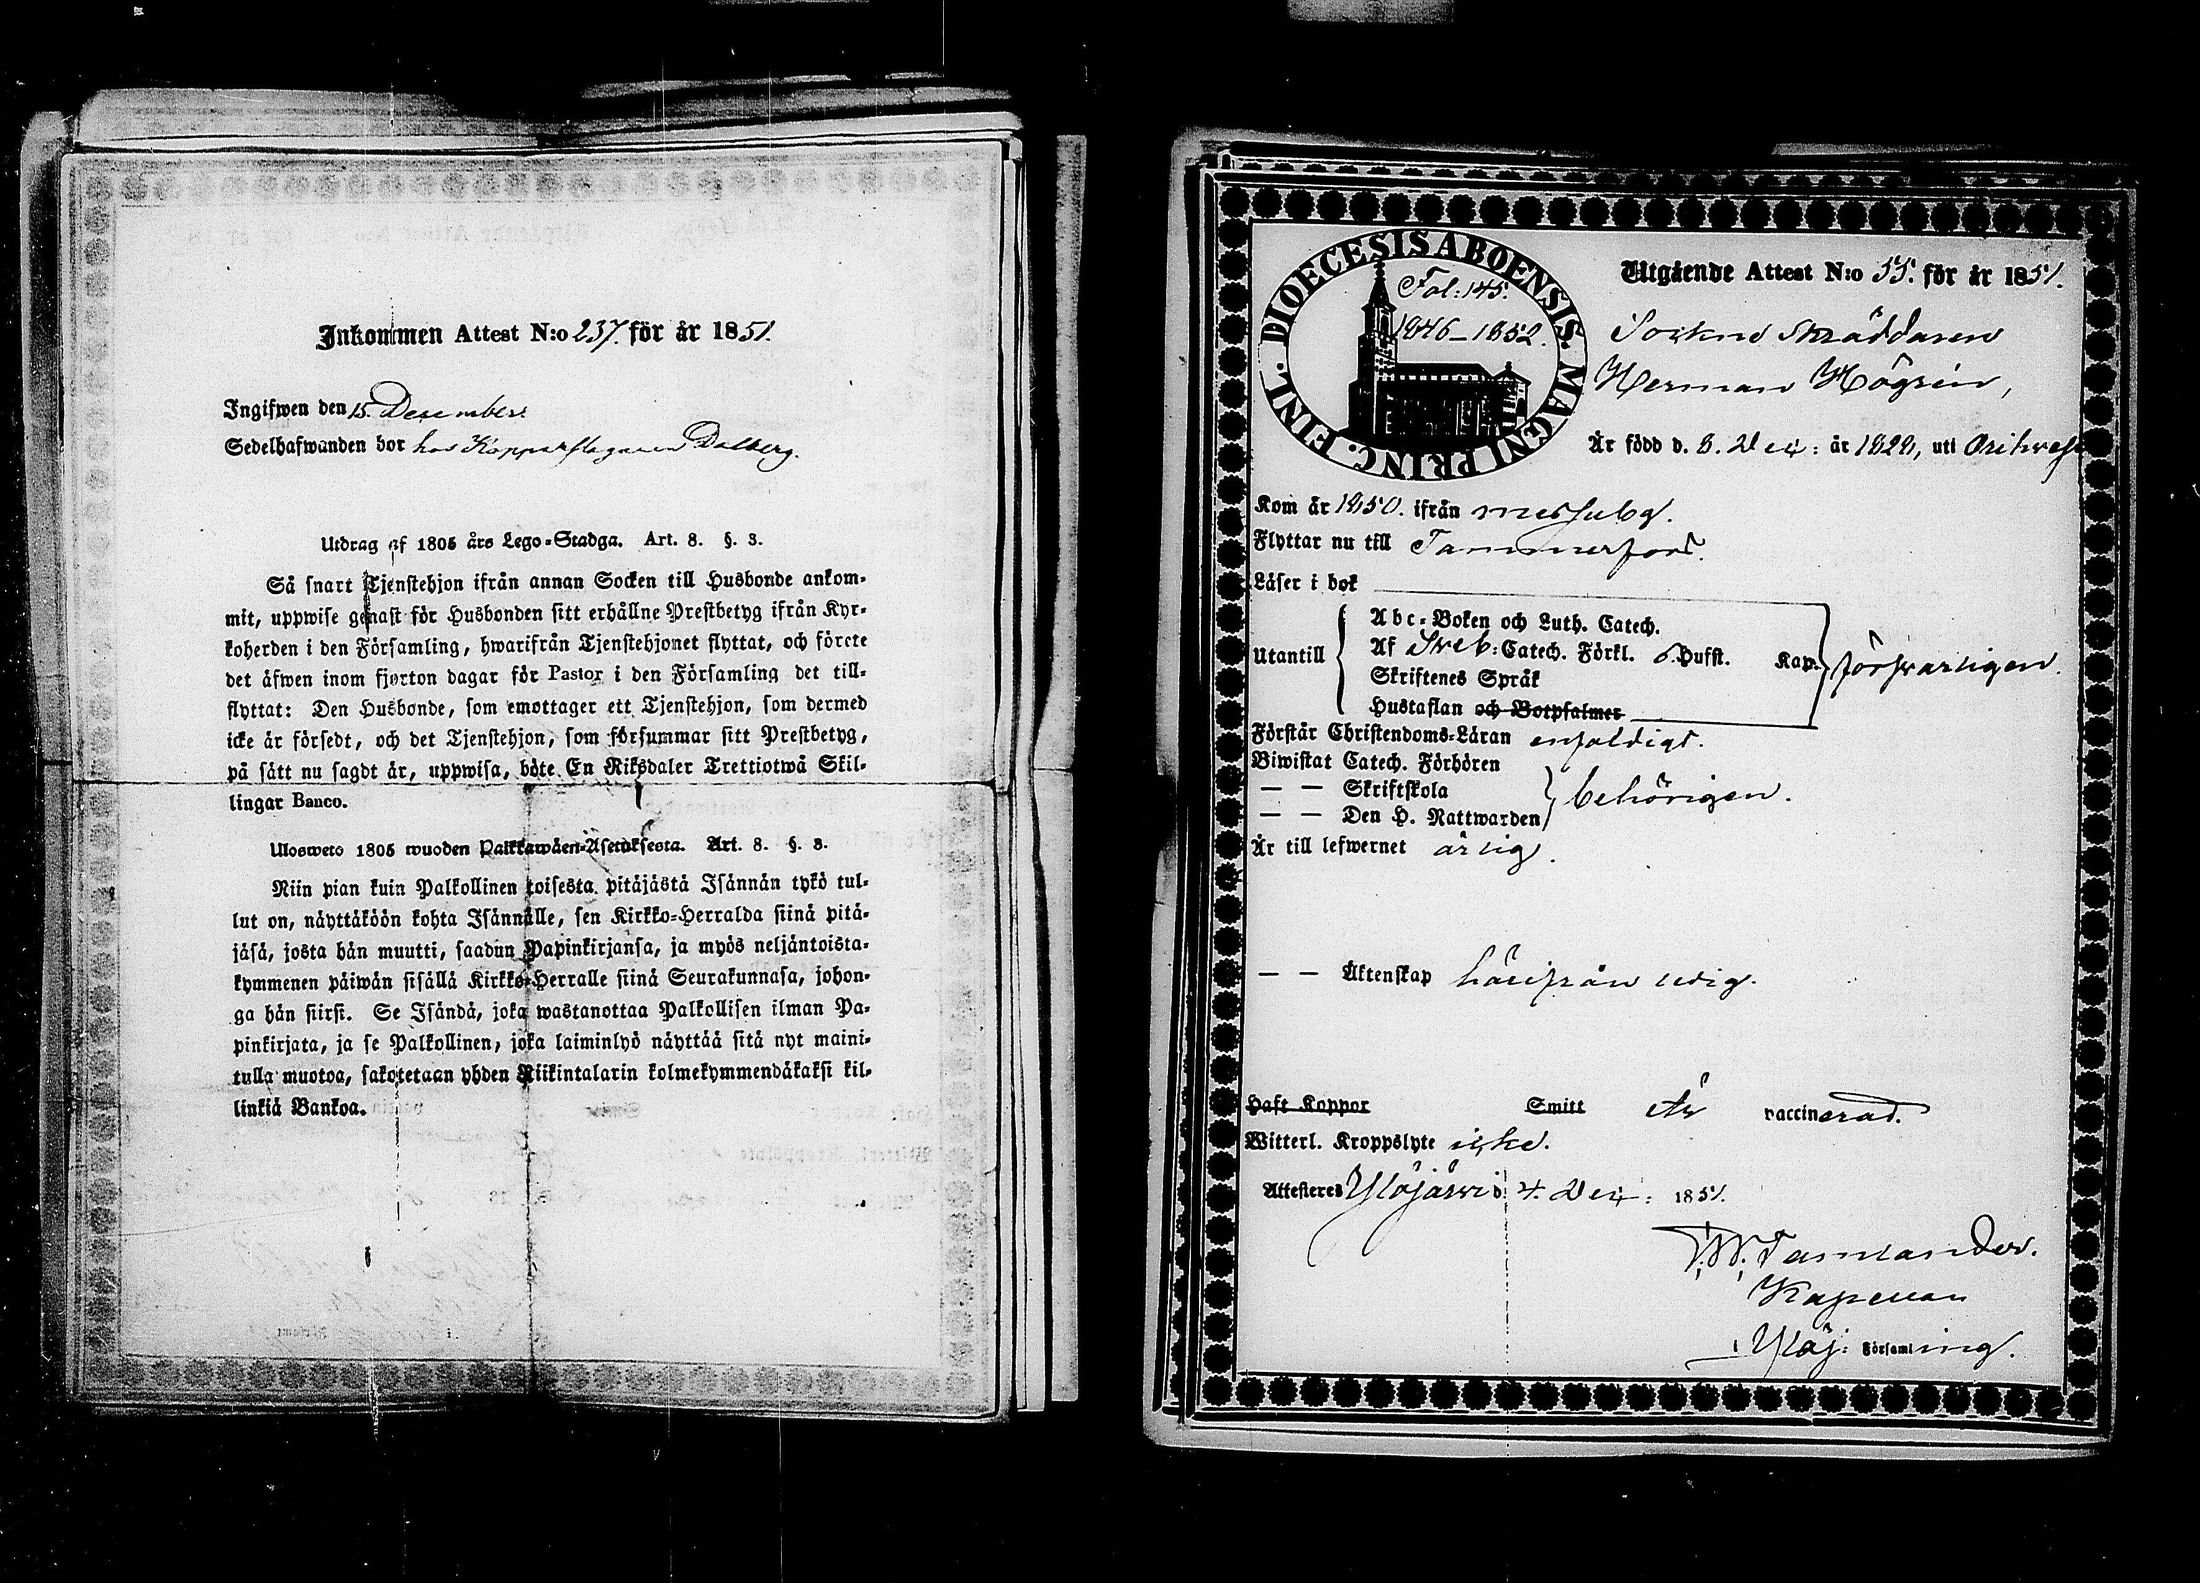 Inkommen Attest N:o 237. för år 1851.
Ingifwen den 15. December.
Sedelhafwanden bor hos Kopparslagaren Dalberg.
Utdrag af 1805 års Lego-Stadga. Art. 8. §. 3.
Så snart Tjenstehjon ifrån annan Socken till Husbonde ankom-
mit, uppwise genast för Husbonden sitt erhållne Prestbetyg ifrån Kyr-
koherden i den Församling, hwarifrån Tjenstehjonet flyttat, och förete
det äfwen inom fjorton dagar för Pastor i den Församling det till-
flyttat: Den Husbonde, som emottager ett Tjenstehjon, som dermed
icke är försedt, och det Tjenstehjon, som försummar sitt Prestbetyg,
på sätt nu sagdt är, uppwisa, böte En Riksdaler Trettiotwå Skil-
lingar Banco.
Ulosweto 1805 wuoden Palkkawäen-Asetuksesta. Art. 8. §. 3.
Niin pian kuin Palkollinen toisesta pitäjästä Isännän tykö tul-
lut on, näyttäköön kohta Isännälle, sen Kirkko-Herralda siinä pitä-
jäsä, josta hän muutti, saadun Papinkirjansa, ja myös neljäntoista-
kymmenen päiwän sisällä Kirkko-Herralle siinä Seurakunnasa, johon-
ga hän siirsi. Se Isändä, joka wastanottaa Palkollisen ilman Pa-
pinkirjata, ja se Palkollinen, joka laiminlyö näyttää sitä nyt maini-
tulla muotoa, sakotetaan yhden Riikintalarin kolmekymmendäkaksi kil-
linkiä Bankoa.
DIOECESIS ABOENSIS. MAGNI PRINC. FINL.
Fol: 145.
1846–1852.
Utgående Attest N:o 55. för år 1851.
Sockne Skräddaren
Herman Högrén,
Är född d. 8. Dec: år 1828, uti
Kom år 1850. ifrån Messuby.
Flyttar nu till Tammerfors.
Läser i bok
Abc-Boken och Luth. Catech.
Utantill Af Sveb: Catech. Förkl. 6. Hufst. Kap. försvarligen.
Skriftenes Språk
Hustaflan och Botpsalmer
Förstår Christendoms-Läran enfaldigt.
Biwistat Catech. Förhören
— — Skriftskola behörigen.
— — Den H. Nattwarden
Är till lefwernet ärlig.
— — Äktenskap härifrån ledig.
Haft Koppor Smitt Är vaccinerad.
Witterl. Kroppslyte icke.
Attesteres Ylöjärvi d. 4. Dec: 1851.
Tamlander.
Kapellan
i Ylöj: Församling.